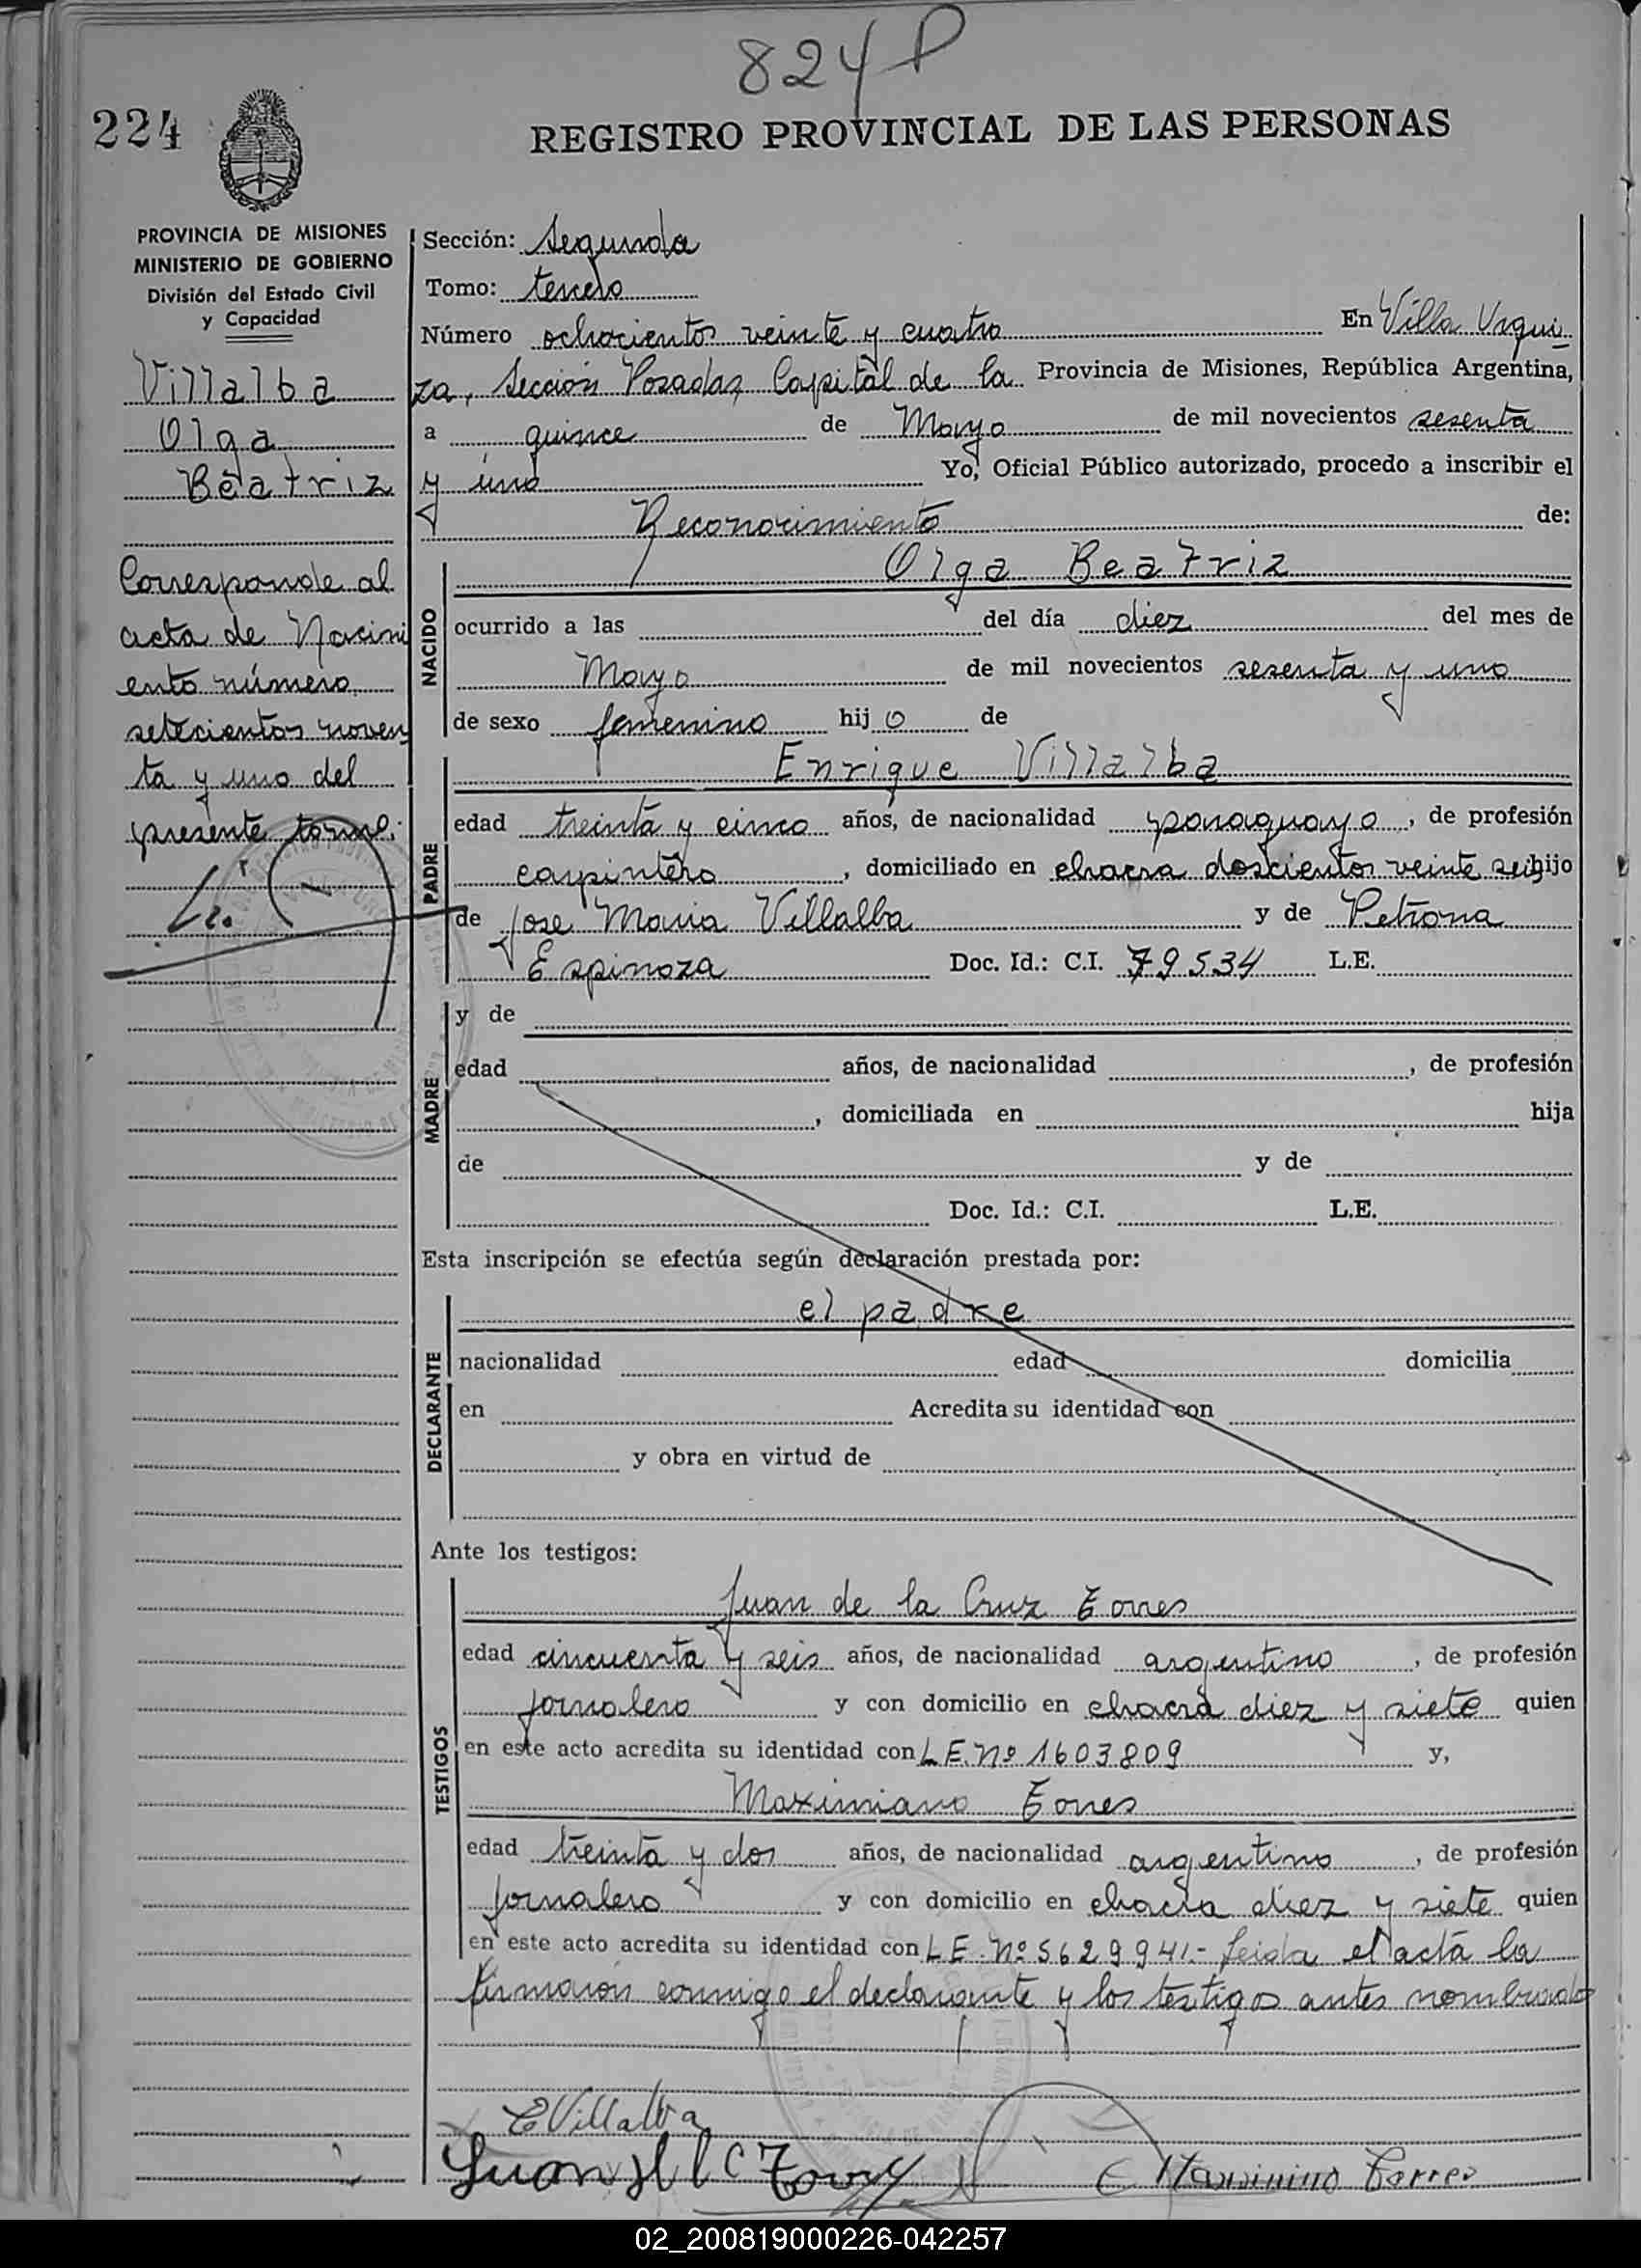 824 P
224
REGISTRO PROVINCIAL DE LAS PERSONAS
PROVINCIA DE MISIONES
MINISTERIO DE GOBIERNO
División del Estado Civil
y Capacidad
Villalba
Olga
Beatriz
Corresponde al
acta de Nacimi
ento número
setecientos noven
ta y uno del
presente tomo.
Sección: Segunda
Tomo: tercero
Número ochocientos veinte y cuatro En Villa Urqui
za, Sección Posadas, Capital de la Provincia de Misiones, República Argentina,
a quince de Mayo de mil novecientos sesenta
y uno Yo, Oficial Público autorizado, procedo a inscribir el
Reconocimiento de:
NACIDO
Olga Beatriz
ocurrido a las del día diez del mes de
Mayo de mil novecientos sesenta y uno
de sexo femenino hijo de
PADRE
Enrique Villalba
edad treinta y cinco años, de nacionalidad paraguayo, de profesión
carpintero, domiciliado en chacra doscientos veinte seis hijo
de Jose Maria Villalba y de Petrona
Espinoza Doc. Id.: C.I. 79534 L.E.
MADRE
y de
edad años, de nacionalidad , de profesión
, domiciliada en hija
de y de
Doc. Id.: C.I. L.E.
Esta inscripción se efectúa según declaración prestada por:
DECLARANTE
el padre
nacionalidad edad domicilia
en Acredita su identidad con
y obra en virtud de
Ante los testigos:
TESTIGOS
Juan de la Cruz Torres
edad cincuenta y seis años, de nacionalidad argentino, de profesión
jornalero y con domicilio en chacra diez y siete quien
en este acto acredita su identidad con L.E. Nº 1603809 y,
Maximiano Torres
edad treinta y dos años, de nacionalidad argentino, de profesión
jornalero y con domicilio en chacra diez y siete quien
en este acto acredita su identidad con L.E. Nº 5629941.- Leida el acta la
firmaron conmigo el declarante y los testigos antes nombrados
E Villalba
Juan
Torres
02_200819000226-042257